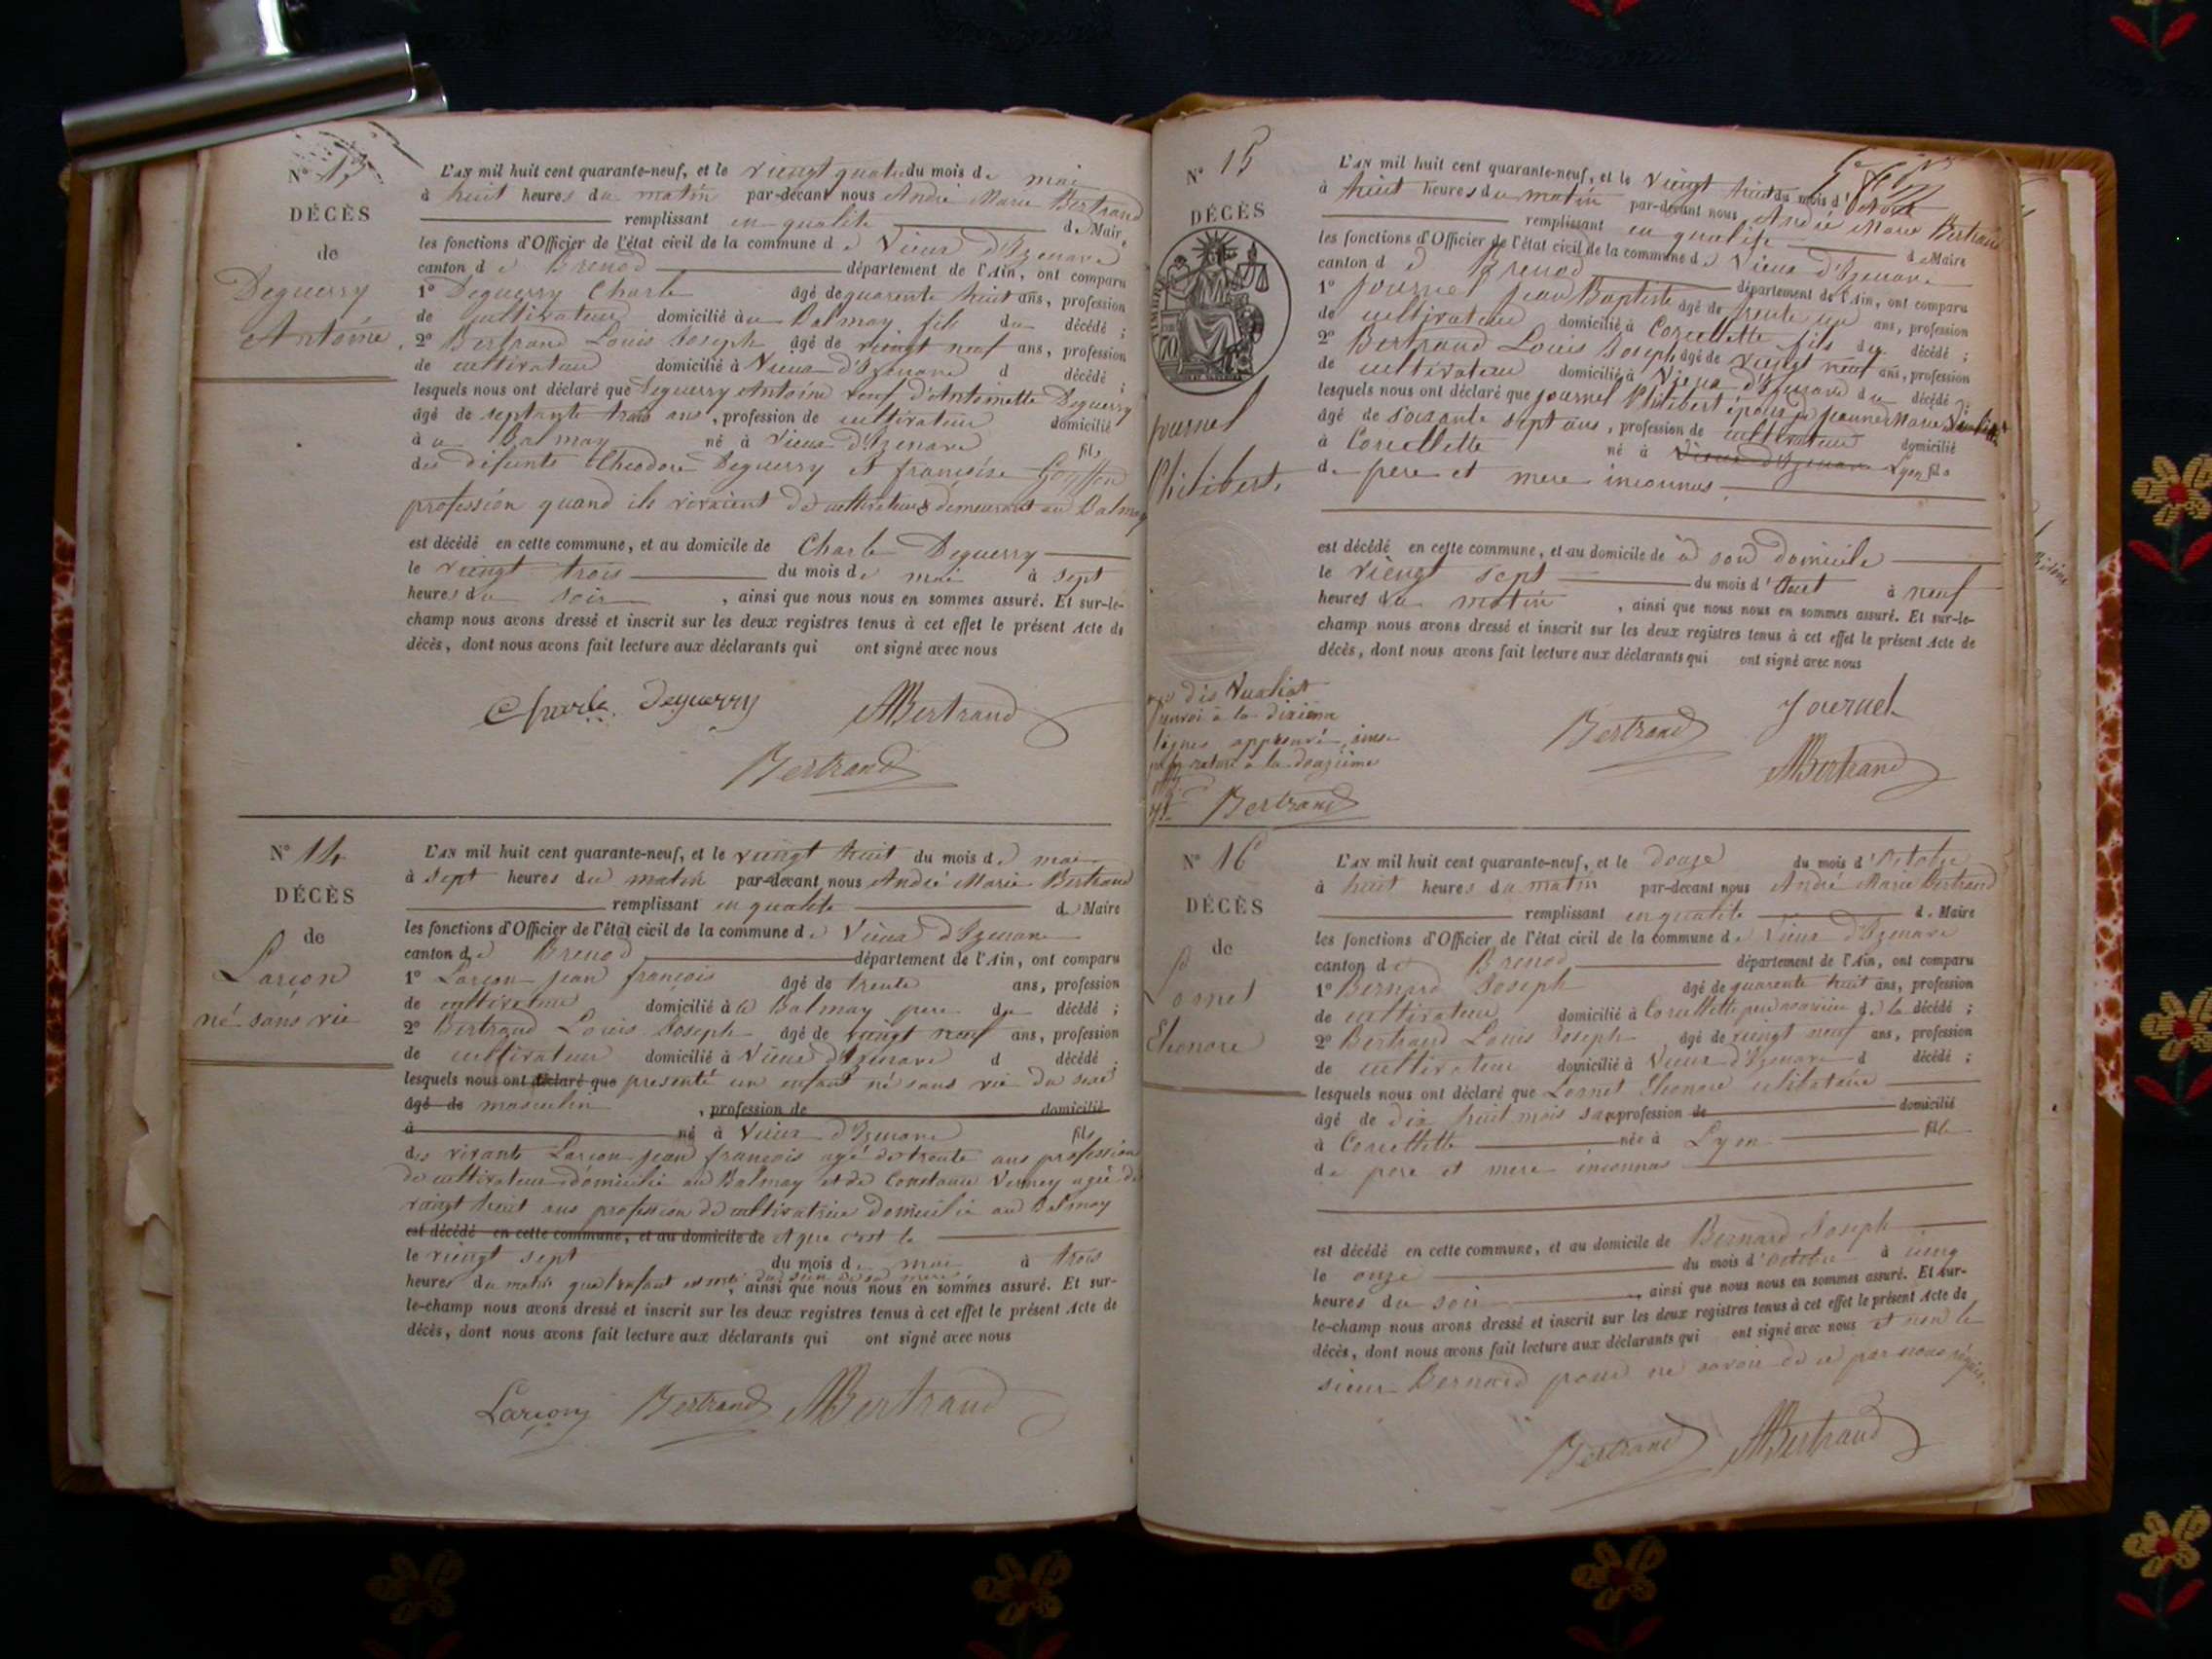 N° 13
DÉCÈS
de
Deguerry
Antoine
L'AN mil huit cent quarante-neuf, et le vingt quatre du mois de mai
à huit heures du matin par-devant nous André Marie Bertrand
remplissant en qualité de Maire
les fonctions d'Officier de l'état civil de la commune de Vieux d'Izenave
canton de Brenod département de l'Ain, ont comparu
1° Deguerry Charle âgé de quarente huit ans, profession
de cultivateur domicilié au Balmay fils du décédé ;
2° Bertrand Louis Joseph âgé de vingt neuf ans, profession
de cultivateur domicilié à Vieux d'Izenave d décédé ;
lesquels nous ont déclaré que Deguerry Antoine veuf d'Antoinette Deguerry
âgé de septante trois ans, profession de cultivateur domicilié
à u Balmay né à Vieux d'Izenave fils
des défunts Théodore Deguerry et françoise
profession quand ils vivaient de cultivateurs demeurant au Balmay
est décédé en cette commune, et au domicile de Charle Deguerry
le vingt trois du mois de mai à sept
heures du soir, ainsi que nous nous en sommes assuré. Et sur-le-
champ nous avons dressé et inscrit sur les deux registres tenus à cet effet le présent Acte de
décès, dont nous avons fait lecture aux déclarants qui ont signé avec nous
Charle Deguerry AMBertrand
Bertrand
N° 14
DÉCÈS
de
Larçon
né sans vie
L'AN mil huit cent quarante-neuf, et le vingt huit du mois de mai
à sept heures du matin par-devant nous André Marie Bertrand
remplissant en qualité de Maire
les fonctions d'Officier de l'état civil de la commune de Vieux d'Izenave
canton de Brenod département de l'Ain, ont comparu
1° Larçon jean françois âgé de trente ans, profession
de cultivateur domicilié à u Balmay pere du décédé ;
2° Bertrand Louis Joseph âgé de vingt neuf ans, profession
de cultivateur domicilié à Vieux d'Izenave d décédé ;
lesquels nous ont déclaré que presenté un enfant né sans vie du sexe
âgé de masculin, profession de domicilié
à né à Vieux d'Izenave fils
des vivants Larçon jean françois agé de trente ans profession
de cultivateur domicilié au Balmay et de Constance Verney agée de
vingt huit ans profession de cultivatrice domicilié au Balmay
est décédé en cette commune, et au domicile de et que c'est le
le vingt sept du mois de mai à trois
heures du matin que l'enfant est sorti du sein de sa mere, ainsi que nous nous en sommes assuré. Et sur-
le-champ nous avons dressé et inscrit sur les deux registres tenus à cet effet le présent Acte de
décès, dont nous avons fait lecture aux déclarants qui ont signé avec nous
Larçon Bertrand AMBertrand
N° 15
DÉCÈS
journel
Philibert
L'AN mil huit cent quarante-neuf, et le vingt huit du mois d'Aout
à huit heures du matin par-devant nous André Marie Bertrand
remplissant en qualité de Maire
les fonctions d'Officier de l'état civil de la commune de Vieux d'Izenave
canton de Brenod département de l'Ain, ont comparu
1° journel jean Baptiste âgé de trente un ans, profession
de cultivateur domicilié à Corcellette fils du décédé ;
2° Bertrand Louis Joseph âgé de vingt neuf ans, profession
de cultivateur domicilié à Vieux d'Izenave du décédé ;
lesquels nous ont déclaré que journel Philibert époux de jeanne Marie
âgé de soixante sept ans, profession de cultivateur domicilié
à Corcellette né à Vieux d'Izenave Lyon fils
de pere et mere inconnus
est décédé en cette commune, et au domicile de à son domicile
le vingt sept du mois d'Aout à neuf
heures du matin, ainsi que nous nous en sommes assuré. Et sur-le-
champ nous avons dressé et inscrit sur les deux registres tenus à cet effet le présent Acte de
décès, dont nous avons fait lecture aux déclarants qui ont signé avec nous
renvoi à la dixième
lignes approuvé ainsi
rature à la douzième
Bertrand
Bertrand Journel
AMBertrand
N° 16
DÉCÈS
de
Lornet
Eléonore
L'AN mil huit cent quarante-neuf, et le douze du mois d'Octobre
à huit heures du matin par-devant nous André Marie Bertrand
remplissant en qualité de Maire
les fonctions d'Officier de l'état civil de la commune de Vieux d'Izenave
canton de Brenod département de l'Ain, ont comparu
1° Bernard Joseph âgé de quarente huit ans, profession
de cultivateur domicilié à Corcellette pere nourricier de la décédé ;
2° Bertrand Louis Joseph âgé de vingt neuf ans, profession
de cultivateur domicilié à Vieux d'Izenave d décédé ;
lesquels nous ont déclaré que Lornet Eléonore celibataire
âgé de dix huit mois sans profession de domicilié
à Corcellette née à Lyon fille
de pere et mere inconnus
est décédé en cette commune, et au domicile de Bernard Joseph
le onze du mois d'octobre à cinq
heures du soir, ainsi que nous nous en sommes assuré. Et sur-
le-champ nous avons dressé et inscrit sur les deux registres tenus à cet effet le présent Acte de
décès, dont nous avons fait lecture aux déclarants qui ont signé avec nous et non le
sieur Bernard pour ne savoir de ce par nous réquis.
Bertrand AMBertrand